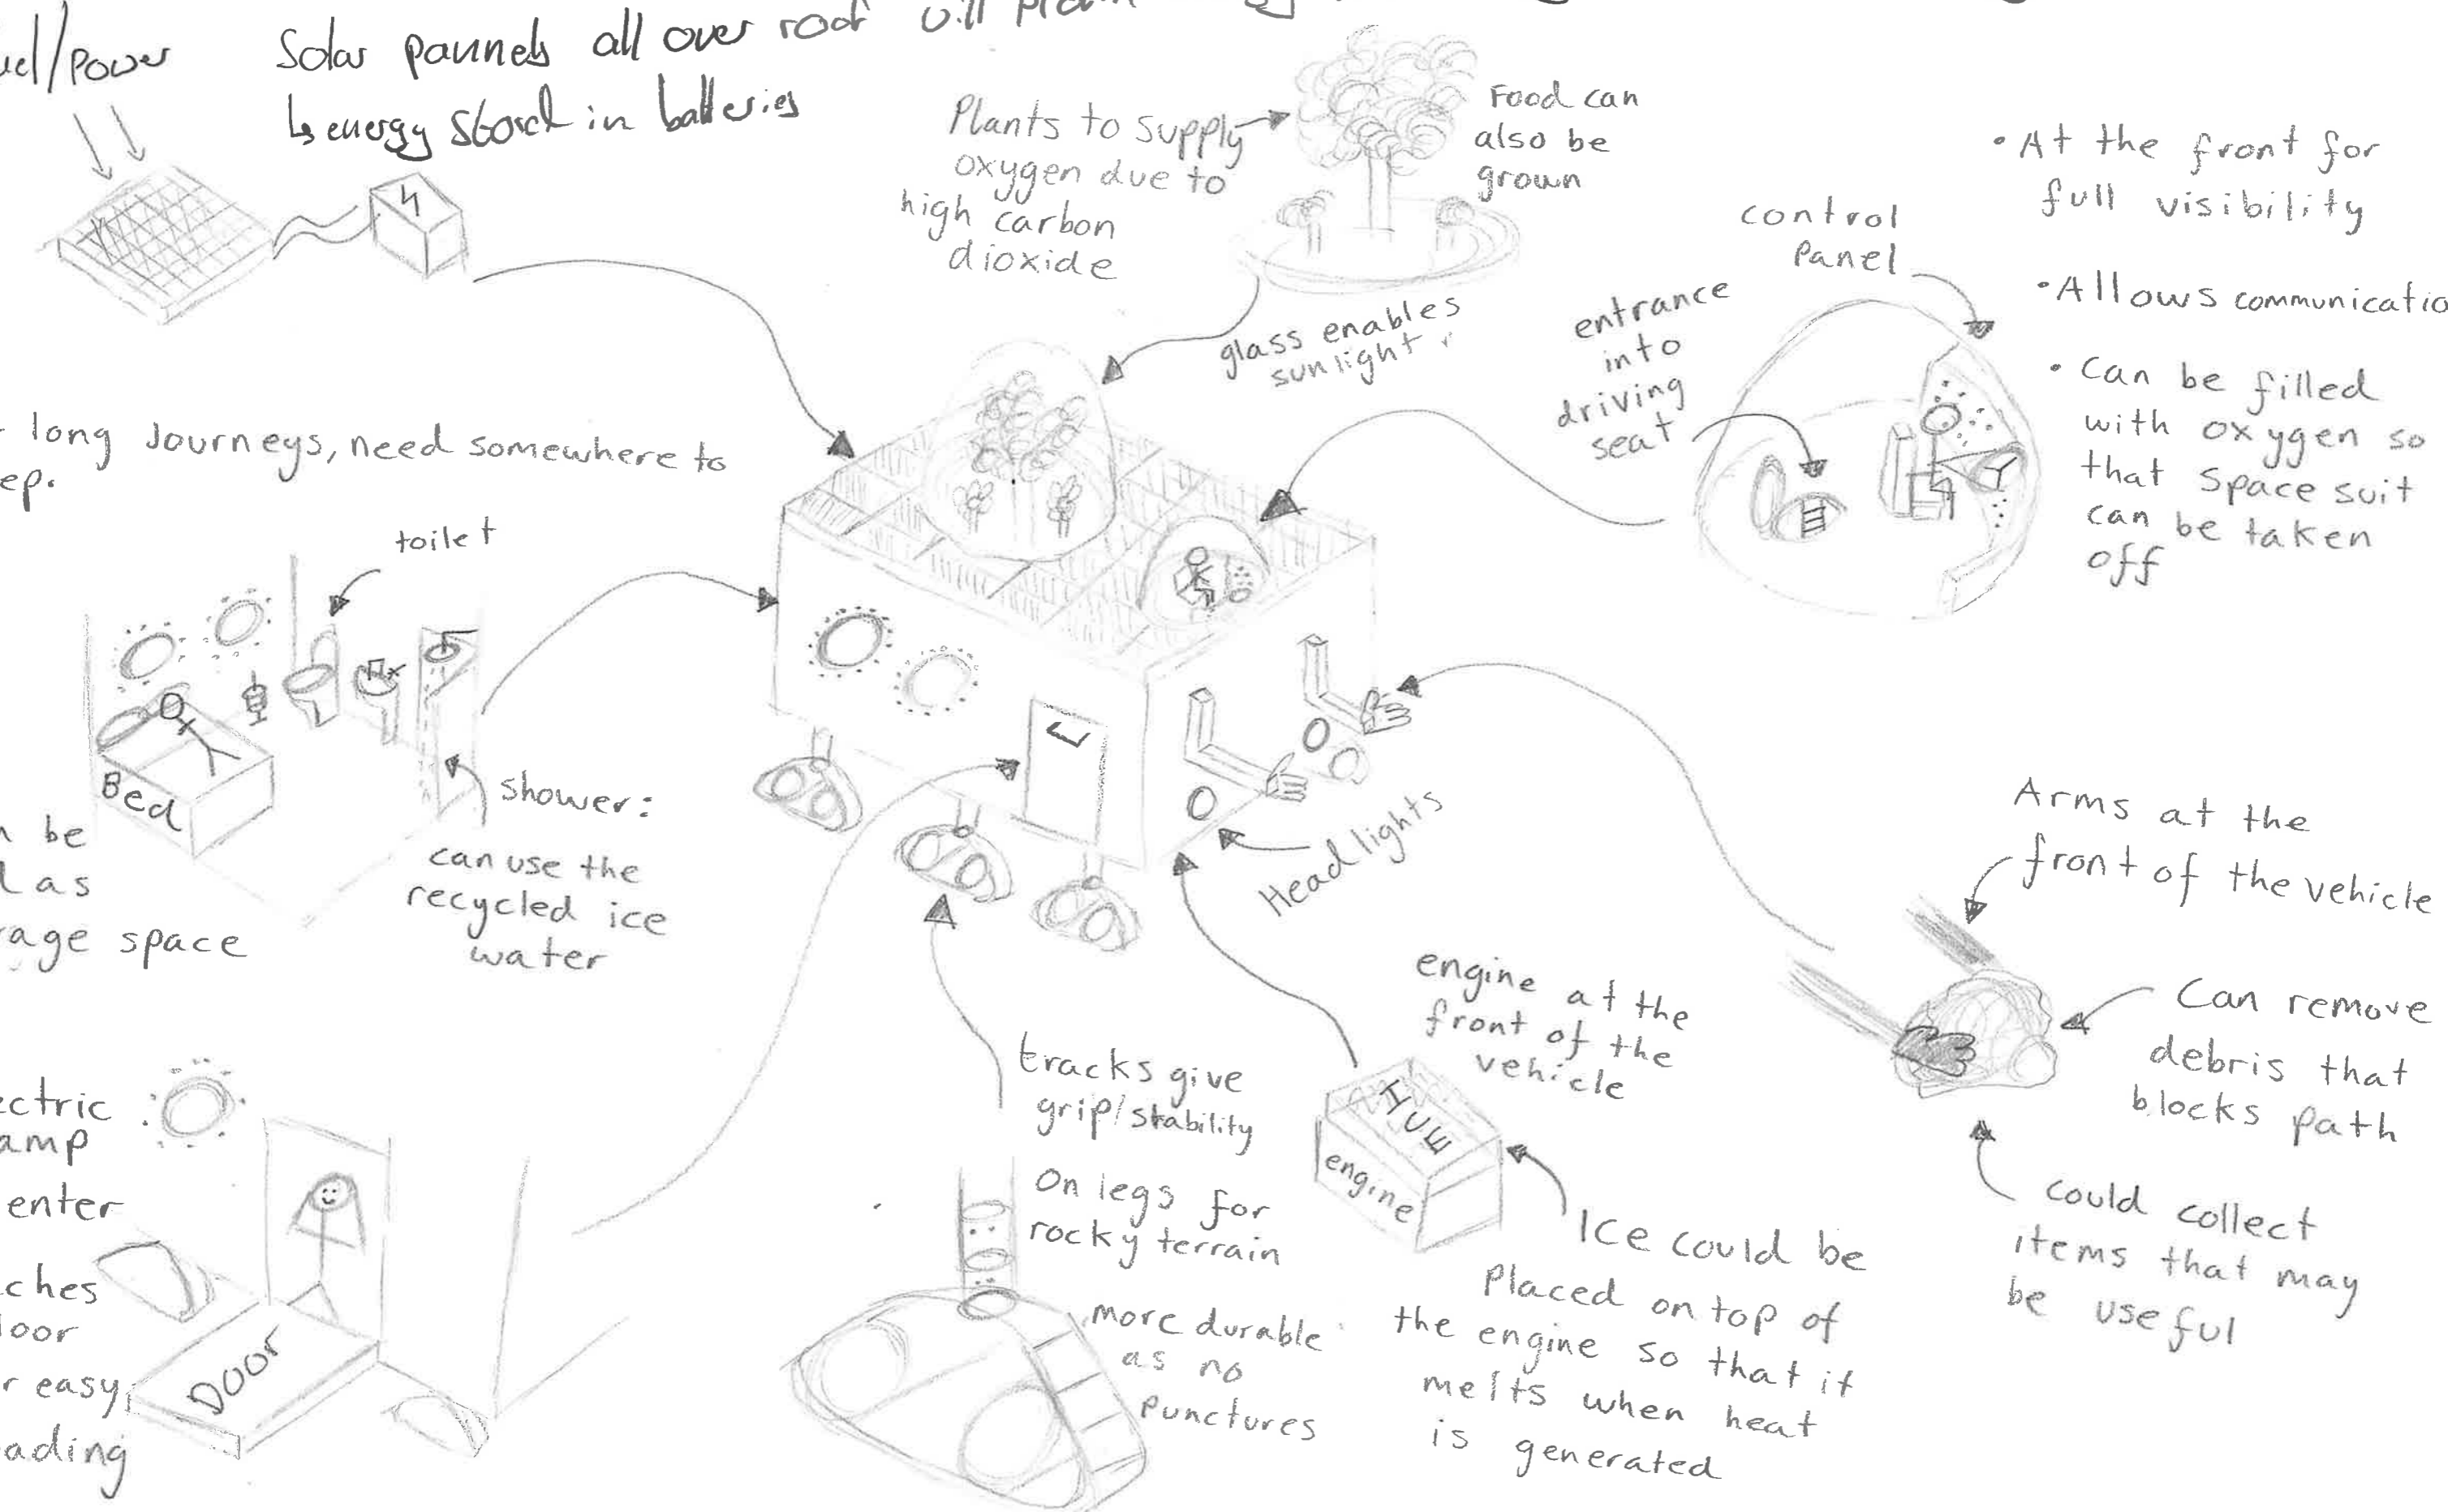 Power
Solar pannels all over roof will
↳ energy stored in batteries
Plants to supply
oxygen due to
high carbon
dioxide
Food can
also be
grown
glass enables
sunlight
control
Panel
entrance
into
driving
seat
• At the front for
full visibility
• Allows communicatio
• Can be filled
with oxygen so
that space suit
can be taken
off
long Journeys, need somewhere to
ep.
toilet
Bed
shower:
can use the
recycled ice
water
be
as
space
Headlights
Arms at the
front of the vehicle
Can remove
debris that
blocks path
could collect
items that may
be useful
engine at the
front of the
vehicle
engine
Ice could be
Placed on top of
the engine so that it
melts when heat
is generated
tracks give
grip/stability
On legs for
rocky terrain
more durable
as no
punctures
ectric
amp
enter
ches
oor
r easy
ading
Door